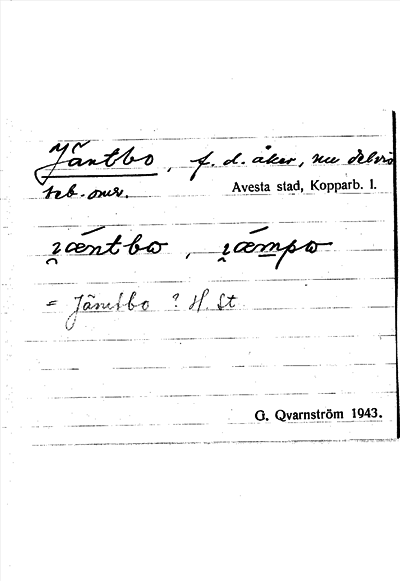 Jäntbo, f. d. åker, nu delvis
beb. omr. Avesta stad, Kopparb. l.
i̯ǽntbω, i̯ǽmpω
= Jämtbo ? H. St
G. Qvarnström 1943.